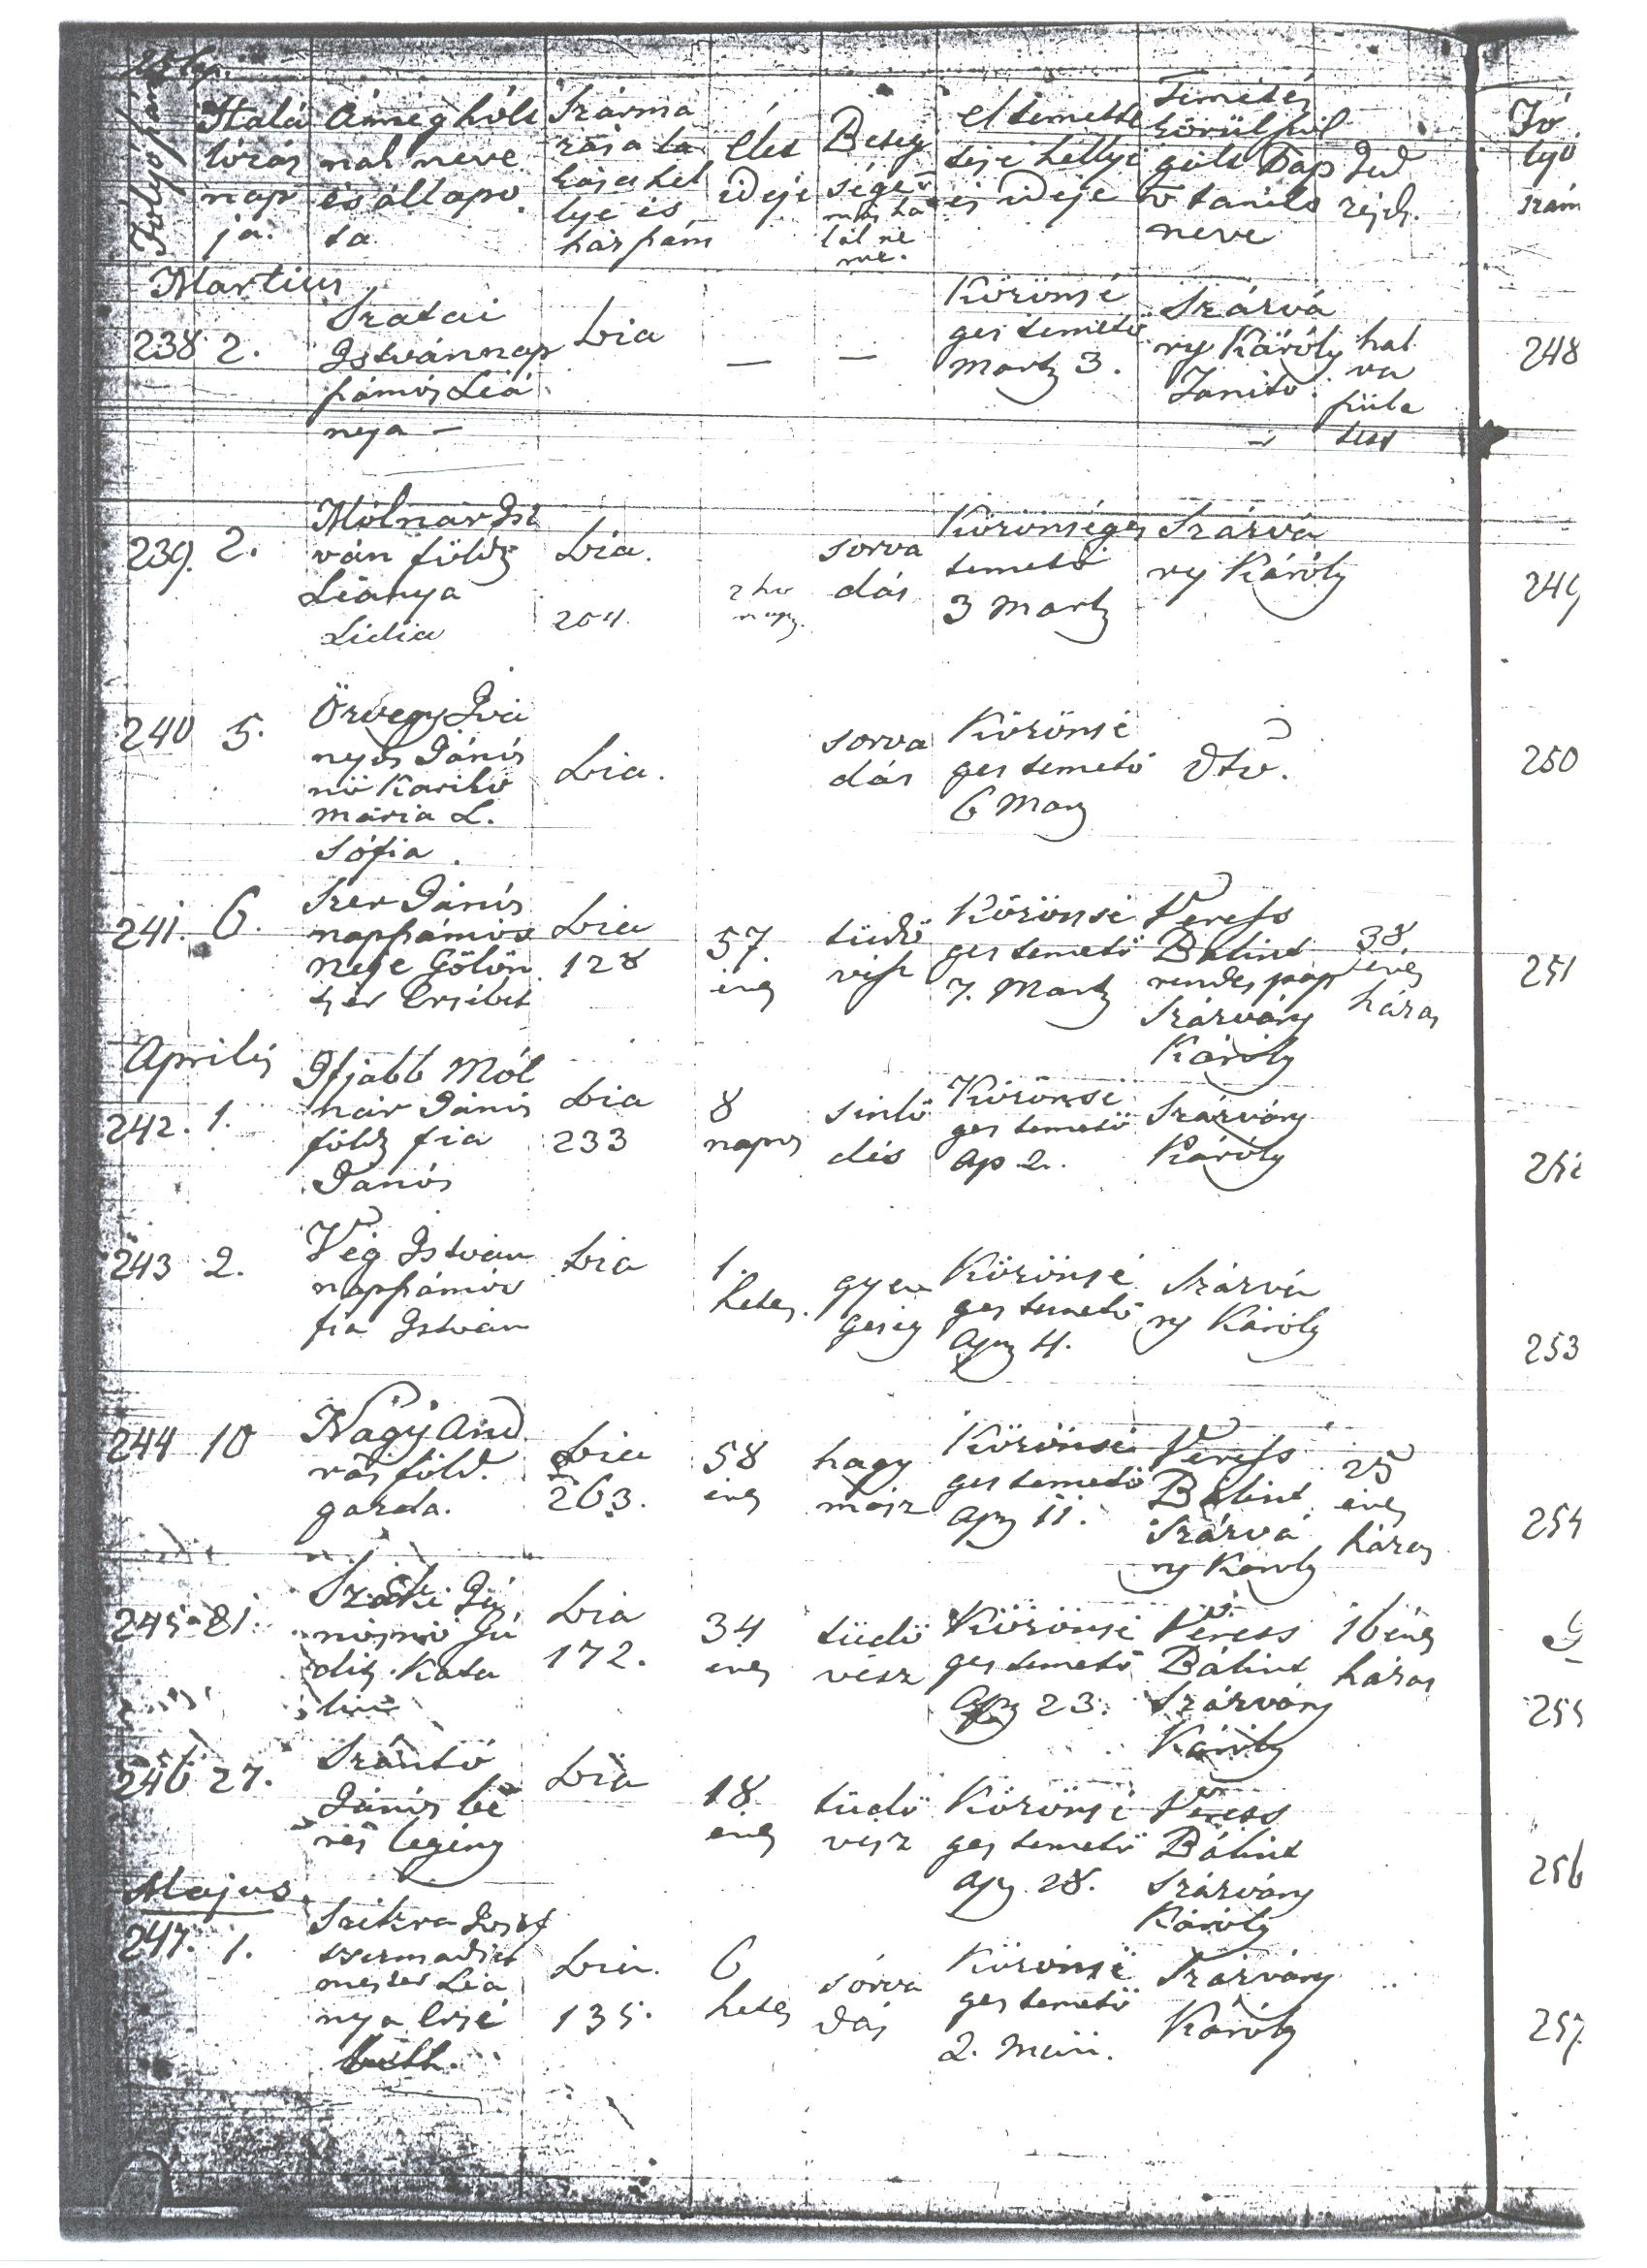 Folyó szám
Halá
lozás
nap
ja.
A meg hólt
nak neve
és állapo
ta
Szárma
zása la
kása hel
lye és
ház szám
élet
ideje
Beteg
sége v
más ha
lál ne
me.
el temette
tése hellye
és ideje
Temetés
körül szol
gáló Pap
v tanito
neve
Jed
zések.
Fó
lyó
szám
Martius
238 2.
Szatai
István nap
számos Leá
nya —
Bia
—
—
Közönsé
ges temető
Martz 3.
Szárvá
ny Károly
Tanito.
hal
va
szüle
tett
248
239. 2.
Mólnar Ist
ván földz
Leánya
Lidia
Bia.
204.
sorva
dás
Közönséges
temető
3 Martz
Szárvá
ny Károly
249
240 5.
Özvegy Ivá
nyos Jánós
nó
mária L.
Sófia.
Bia.
sorva
dás
Közönsé
ges temető
6 Marz
250
241. 6.
Szer Jánós
napszámos
neje Gölön
tsér Ersébet
Bia
128
57.
éves
tüdő
vész
Közönsé
ges temető
7. Martz
Veress
Bálint
rendes pap
Szárvány
Károly
38.
éves
házas
251
Aprilis
242. 1.
Ifjabb Mól
nár Jánós
földz fia
Jánós
Bia
233
8
napos
sinlő
dés
Közönsé
ges temető
Ap 2.
Szárvány
Károly
252
243 2.
Vég István
napszámos
fia István
Bia
1.
hetes.
gyen
geség
Közönsé
ges temető
Apr 4.
Szárvá
ny Károly
253
244 10
Nagy And
rás föld.
gazda.
Bia
263.
58
éves
hagy
máz
Közönsé
ges temető
Apr 11.
Veress
Bálint
Szárvá
ny Károly
25
éves
házas
254
245 21.
Ja
nósnó Ju
dits Kata
lin
Bia
172.
34
éves
tüdő
vész
Közönsé
ges temető
Apr 23.
Veress
Bálint
Szárvány
Károly
16 éves
házas
255
246 27.
Szántó
Jánós bé
res legény
Bia
18
éves
tüdő
vész
Közönsé
ges temető
Apr. 28.
Veress
Bálint
Szárvány
Károly
256
Majus.
247. 1.
Szikra Josef
mester Leá
nya Ersé
beth.
Bia.
135.
6
hetes
sorva
dás
Közönsé
ges temető
2. Maii.
Szárvány
Károly
257